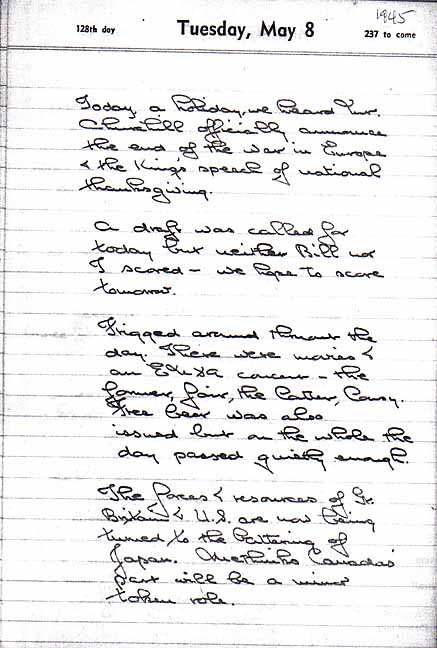 1945
128th day Tuesday, May 8 237 to come
Today, a holiday, we heard Mr.
Churchill officially announce
the end of the war in Europe
& the King's speech of national
thanksgiving.
A draft was called for
today but neither Bill nor
I scored - we hope to score
tomorrow.
Frigged around thruout the
day. There were movies &
an ENSA concert - the
former, fair, the latter, lousy.
Free beer was also
issued but on the whole the
day passed quietly enough.
The forces & resources of Gt.
Britain & U.S. are now being
turned to the battering of
Japan. Methinks Canada's
part will be a minor
token role.